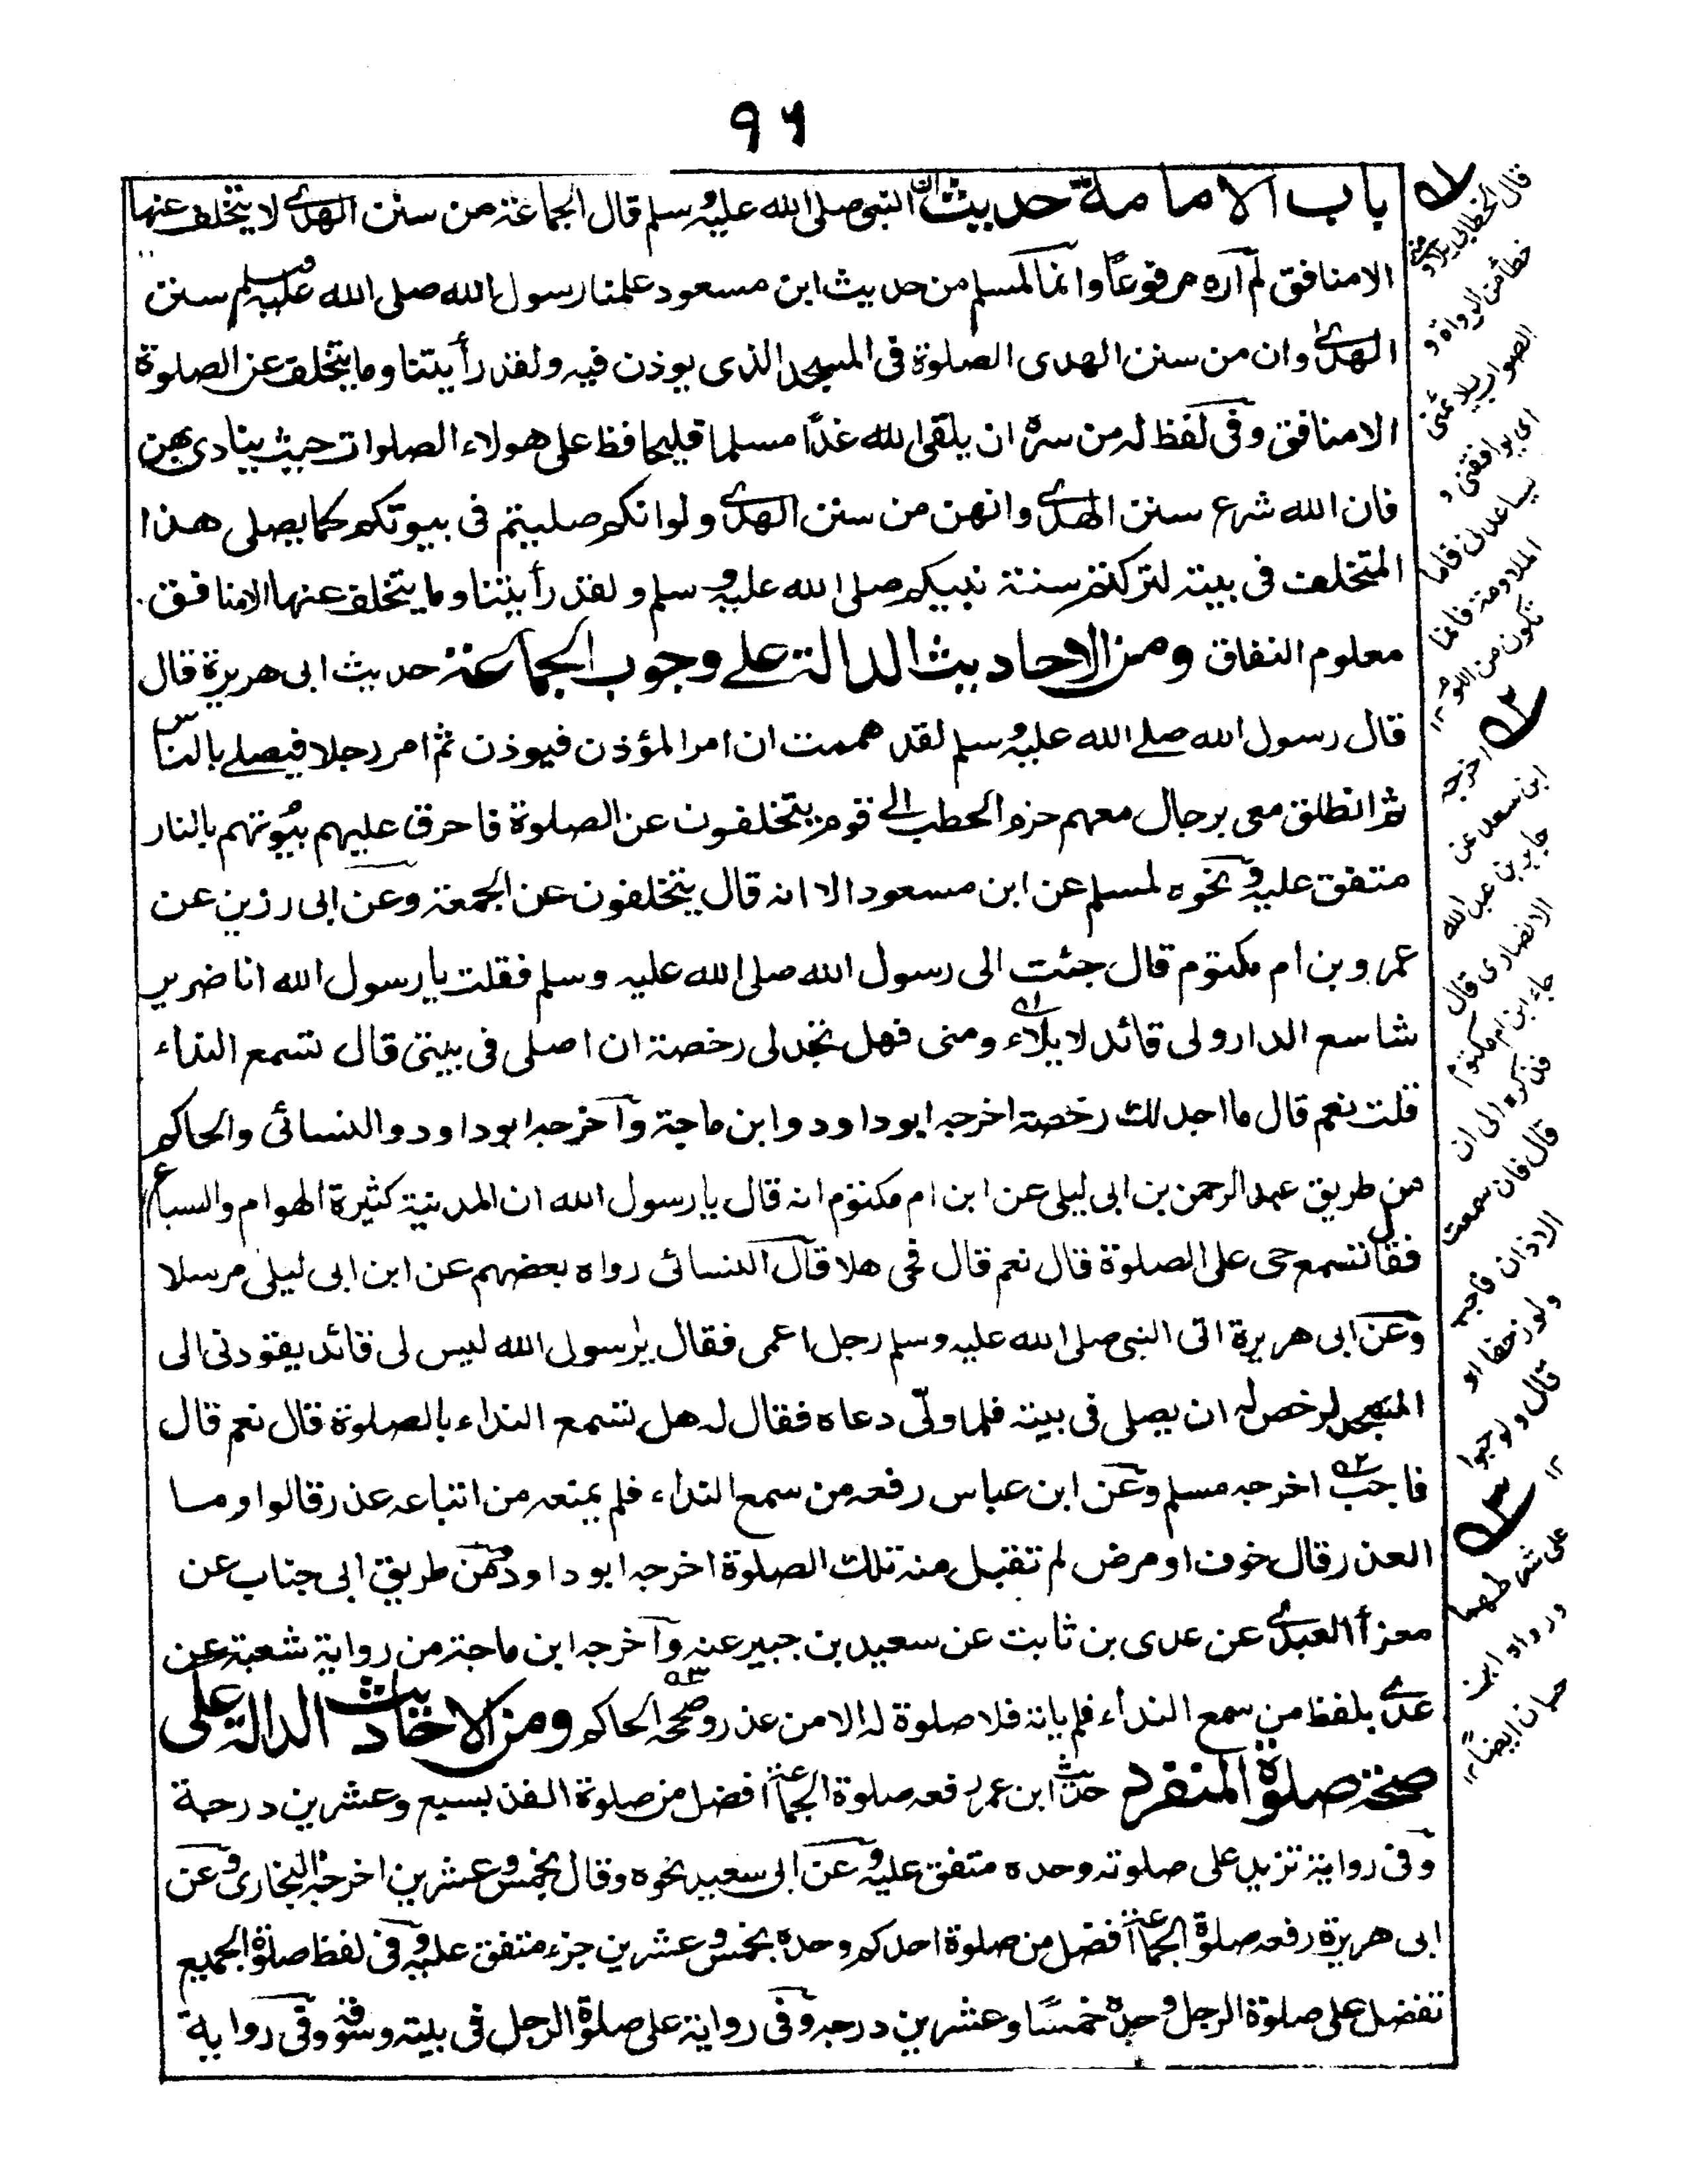 ٩٦
باب الامامة حديث ان النبى صلى الله عليه وسلم قال الجماعة من سنن الهدى لا يتخلف عنها
الا منافق لم اره مرفوعا وانما لمسلم من حديث ابن مسعود علمنا رسول الله صلى الله عليه وسلم سنن
الهدى وان من سنن الهدى الصلوة فى المسجد الذى يوذن فيه ولقد رأيتنا وما يتخلف عن الصلوة
الا منافق وفى لفظ له من سره ان يلقى الله غدًا مسلما فليحافظ على هولاء الصلوات حيث ينادى بهن
فان الله شرع سنن الهدى وانهن من سنن الهدى ولو انكم صليتم فى بيوتكم كما يصلى هذا
المتخلف فى بيته لتركتم سنة نبيكم صلى الله عليه وسلم ولقد رأيتنا وما يتخلف عنها الا منافق
معلوم النفاق ومن الاحاديث الدالة على وجوب الجماعة حديث ابى هريرة قال
قال رسول الله صلے الله عليه وسلم لقد هممت ان امر المؤذن فيوذن ثم امر رجلا فيصلے بالناس
ثم انطلق معى برجال معهم حزم الحطب الى قوم يتخلفون عن الصلوة فاحرق عليهم بيوتهم بالنار
متفق عليه ونحوه لمسلم عن ابن مسعود الا انه قال يتخلفون عن الجمعة وعن ابى رزين عن
عمرو بن ام مكتوم قال جئت الى رسول الله صلى الله عليه وسلم فقلت يا رسول الله انا ضرير
شاسع الدار ولى قائد لا يلاء ومنى فهل تجد لى رخصة ان اصلى فى بيتى قال تسمع النداء
قلت نعم قال ما اجد لك رخصة اخرجه ابوداود وابن ماجة وآخرجه ابوداود والنسائى والحاكم
من طريق عبد الرحمن بن ابى ليلى عن ابن ام مكتوم انه قال يا رسول الله ان المدينة كثيرة الهوام والسباع
فقال تسمع حى على الصلوة قال نعم قال فحى هلا قال النسائى رواه بعضهم عن ابن ابى ليلى مرسلا
وعن ابى هريرة اتى النبى صلى الله عليه وسلم رجل اعمى فقال يا رسول الله ليس لى قائد يقودنى الى
المسجد فرخص له ان يصلى فى بيته فلما ولّى دعاه فقال له هل تسمع النداء بالصلوة قال نعم قال
فاجب اخرجه مسلم وعن ابن عباس رفعه من سمع النداء فلم يمنعه من اتباعه عذر قالوا وما
العذر قال خوف او مرض لم تقبل منه تلك الصلوة اخرجه ابوداود من طريق ابى جناب عن
معزأ العبدى عن عدى بن ثابت عن سعيد بن جبير عنه وآخرجه ابن ماجة من رواية شعبة عن
عدى بلفظ من سمع النداء فلم ياته فلا صلوة له الا من عذر وصححه الحاكم ومن الاحاديث الدالة على
صحة صلوة المنفرد حديث ابن عمر رفعه صلوة الجماعة افضل من صلوة الفذ بسبع وعشرين درجة
وفى رواية تزيد على صلوته وحده متفق عليه وعن ابى سعيد نحوه وقال بخمس وعشرين اخرجه البخارى وعن
ابى هريرة رفعه صلوة الجماعة افضل من صلوة احدكم وحده بخمس وعشرين جزء متفق عليه وفى لفظ صلوة الجميع
تفضل على صلوة الرجل وحده خمسًا وعشرين درجه وفى رواية على صلوة الرجل فى بيته وسوقه وفى رواية
له
قال الخطابى يلاومنى
خطأ من الرواة و
الصواب يلائمنى
اى يوافقنى و
يساعدنى فاما
الملاومة فانما
تكون من اللوم ١٢
٢ه اخرجه
ابن سعد عن
جابر بن عبد الله
الانصارى قال
جاء ابن ام مكتوم
فذكره الى ان
قال فان سمعت
الاذان فاجبه
ولو زحفا او
قال ولو حبوا
١٢
٣ه
على شرطهما
ورواه ابن
حبان ايضًا ١٢